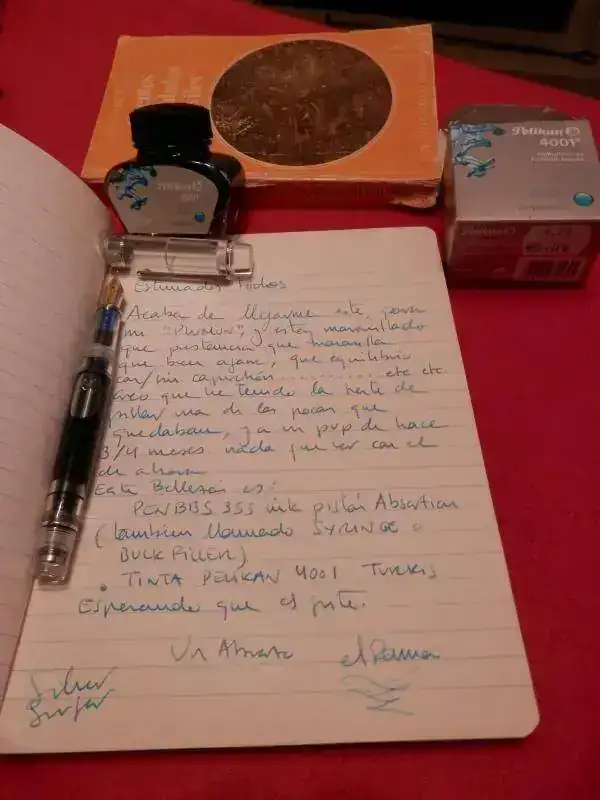 Pelikan
4001
Pelikan
4001
Pelikan
Estimados Todos
Acaba de llegarme este, para
mi "PLUMON", y estoy maravillado
que prestancia que maravilla
que bien agarre, que equilibrio
con/sin capuchón............etc etc.
Creo que he tenido la suerte de
pillar una de las pocas que
quedaban, y a un pvp de hace
3/4 meses. nada que ver con el
de ahora
Esta Belleza es:
PENBBS 355 ink pistón Absortion
(tambien llamado SYRINGE o
BULK FILLER)
• TINTA PELIKAN 4001 TURKIS
Esperando que os guste.
Un Abrazo
Silver
Surfer